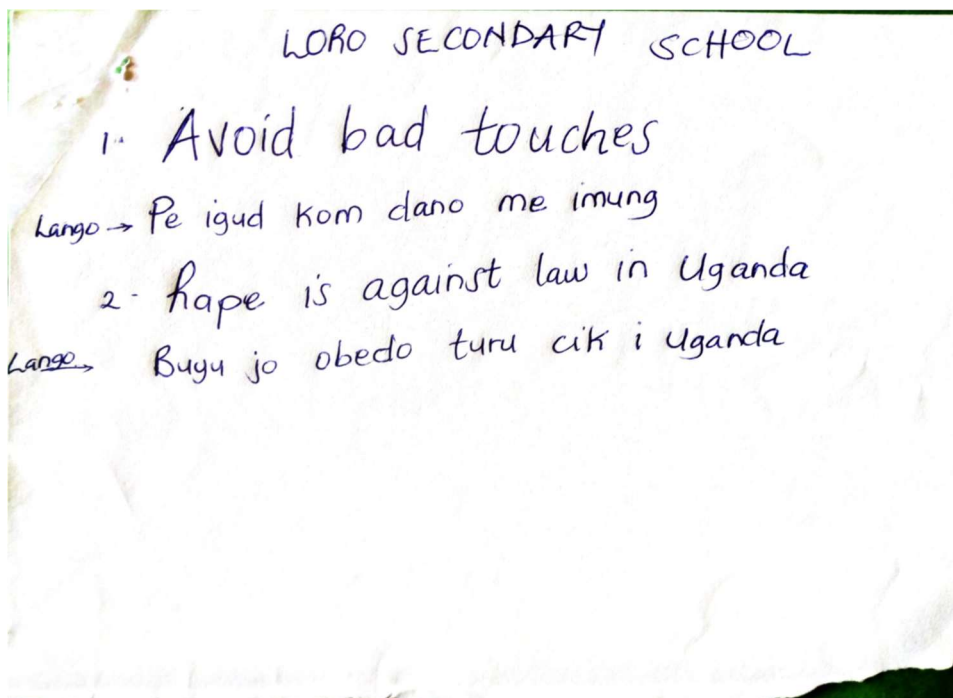 LORO SECONDARY SCHOOL
1. Avoid bad touches
Lango → Pe igud kom dano me imung
2- Rape is against law in Uganda
Lango → Buyu jo obedo turu cik i Uganda